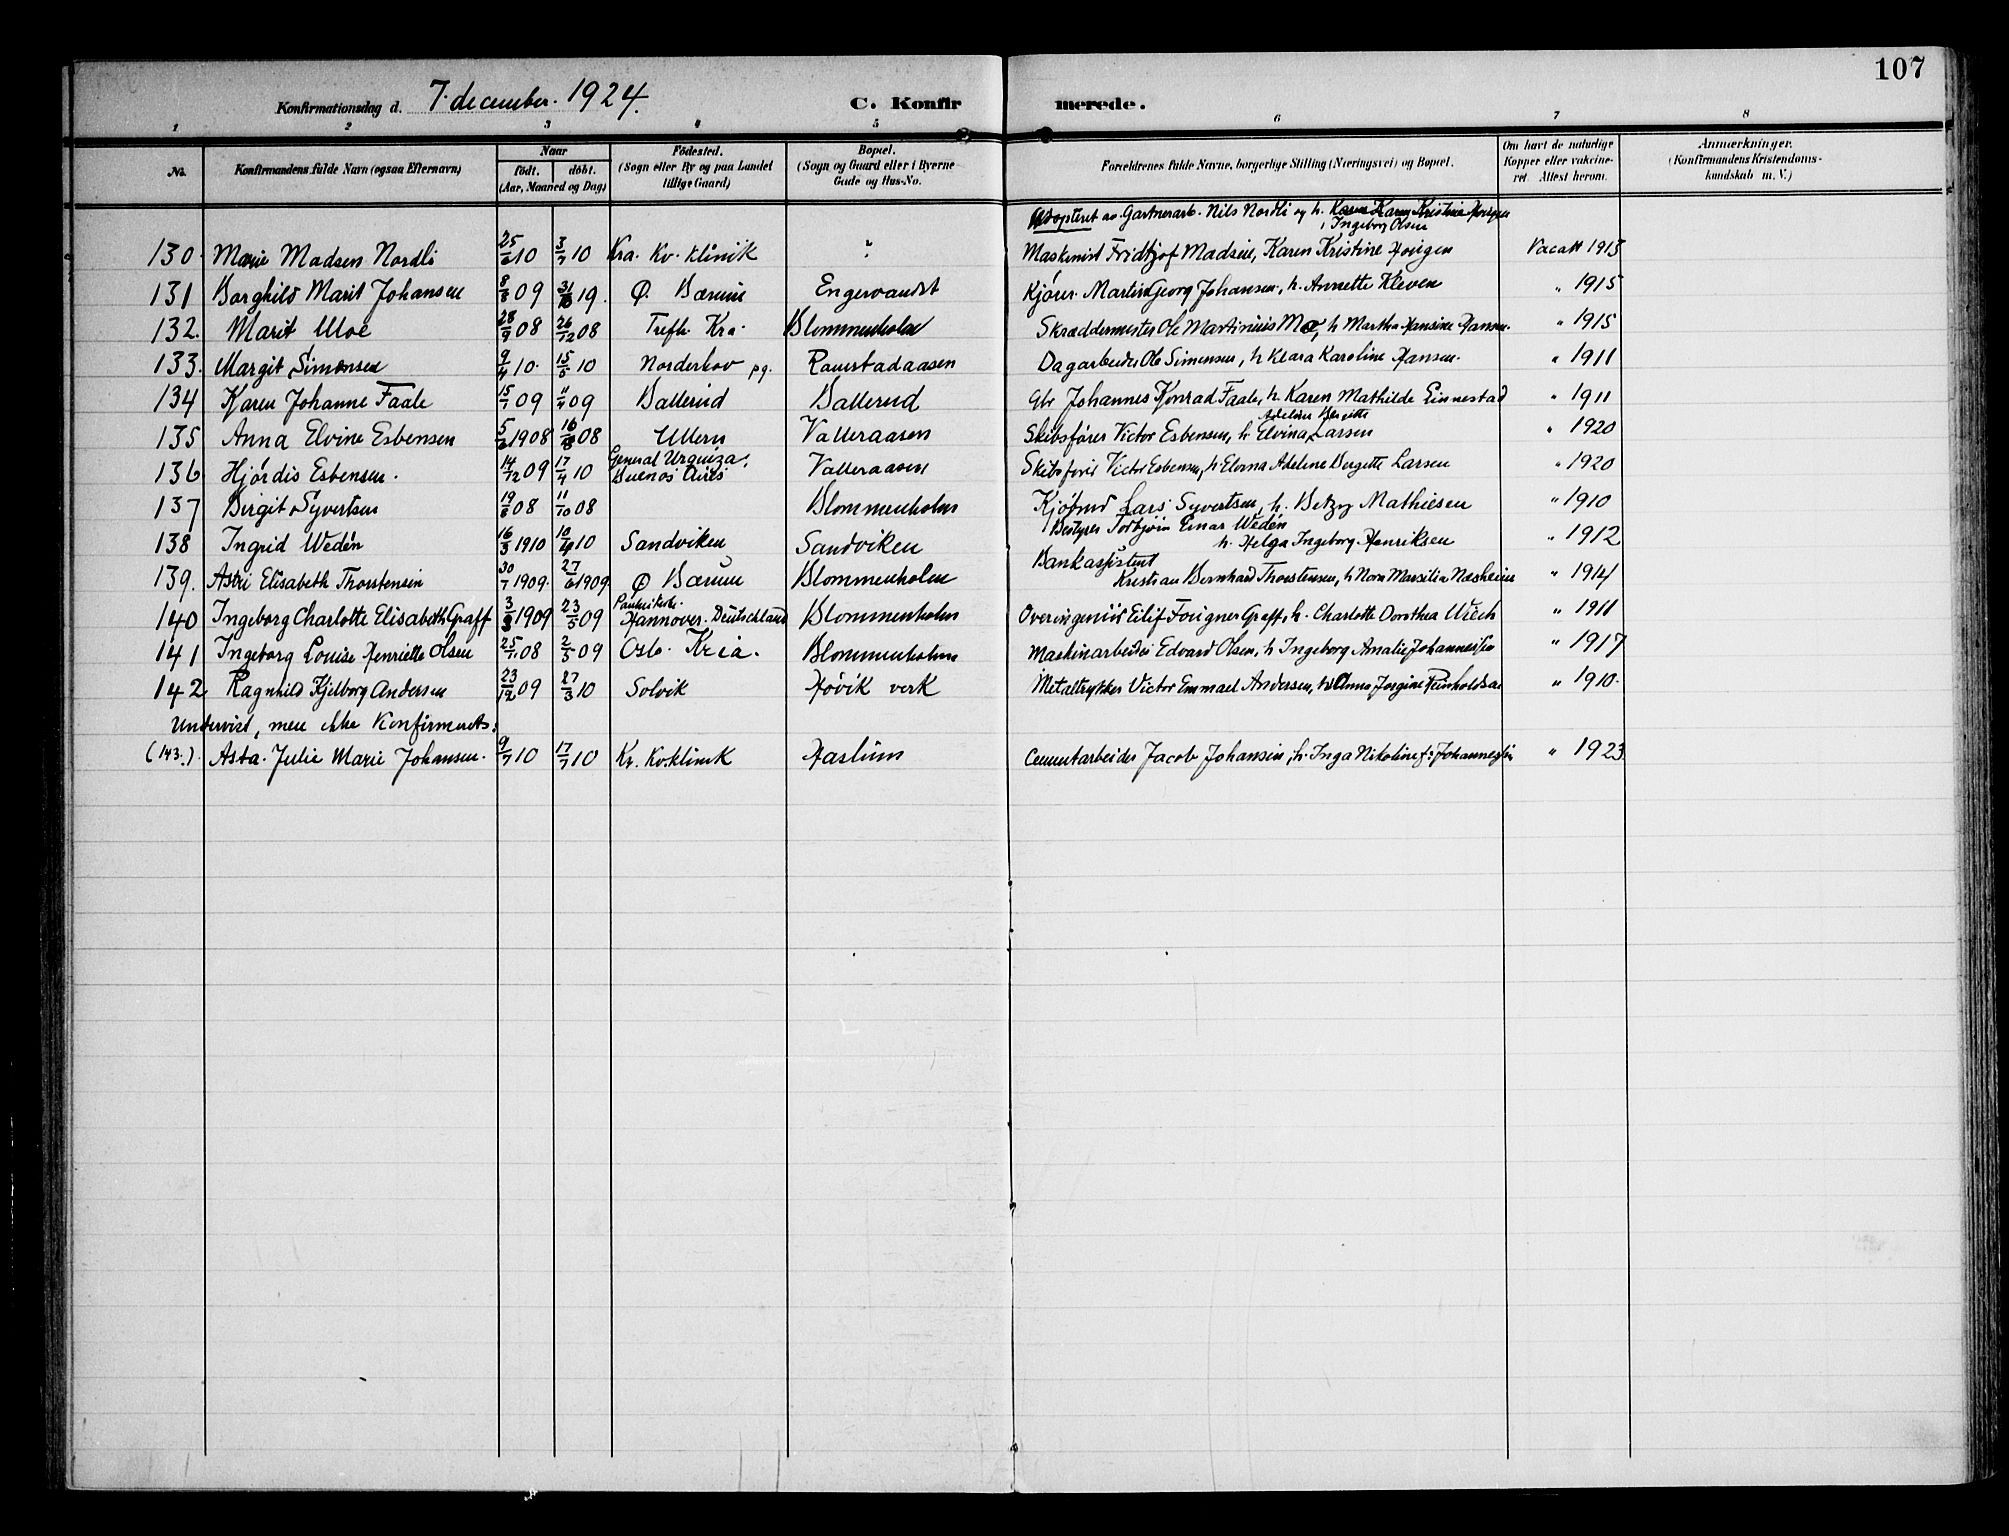 107
Konfirmationsdag d. 7. december. 1924.
C. Konfirmerede.
1 2 3 4 5 6 7 8
No. Konfirmandens fulde Navn (ogsaa Efternavn) Naar födt. döbt. (Aar, Maaned og Dag) Födested. (Sogn eller By og paa Landet tillige Gaard) Bopæl. (Sogn og Gaard eller i Byerne Gade og Hus-No. Forældrenes fulde Navne, borgerlige Stilling (Næringsvei) og Bopæl. Om havt de naturlige Kopper eller vakcineret. Attest herom. Anmærkninger. (Konfirmandens Kristendomskundskab m. V.)
Adopteret av Gartnerarb. Nils Nordli og h. Karen Kristine Hougen
Ingeborg Olsen
130. Marie Madsen Nordli 25/6 10 3/7 10 Kra. Kv. klinik " Maskinist Fridtjof Madsen, Karen Kristine Hougen Vacatt 1915
131 Borghild Marit Johansen 8/8 09 31/10 19. Ø. Bærum Engervandet Kjörer Martin Georg Johansen, h. Annette Kleven " 1915
132. Marit Moe 28/9 08 26/12 08 Trefh. Kra. Blommenholm Skræddermester Ole Martinius Moe, h Martha Hansine Hansen. " 1915
133. Margit Simonsen 9/4 10. 15/5 10 Norderhov pg. Ramstadaasen Dagarbeider Ole Simensen, h Klara Karoline Hansen. " 1911
134 Karen Johanne Faale 15/7 09 11/4 09 Ballerud Ballerud Gbr Johannes Konrad Faale, h Karen Mathilde Linnestad " 1911
135 Anna Elvine Esbensen 5/6 1908 16/8 08 Ullern Valleraasen Skibsförer Victor Esbensen, h. Elvina Adeline Bergitte Larsen " 1920
136 Hjördis Esbensen. 14/12 09 17/4 10 General Urquiza, Buenos Aires Valleraasen Skibsförer Victor Esbensen, h. Elvina Adeline Bergitte Larsen " 1920
137 Birgit Syvertsen 19/6 08 11/10 08 Blommenholm Kjöbmd Lars Syvertsen, h. Betzy Mathiesen " 1910
138 Ingrid Wedén 16/3 1910 10/4 10 Sandviken Sandviken Bestyrer Torbjörn Einar Wedén
h. Helga Ingeborg Henriksen " 1912
139. Astri Elisabeth Thorstensen 30/7 1909. 27/6 1909 Ø Bærum Blommenholm Bankassistent
Kristian Bernhard Thorstensen, h Nora Marsilia Næsheim " 1914
140 Ingeborg Charlotte Elisabeth Graff 3/3 1909 23/5 09 Hannover. Deutschland Blommenholm Overingeniör Eilif Fougner Graff, h. Charlotte Dorothea Wrech " 1911
141 Ingeborg Louise Henriette Olsen 25/11 08 2/5 09 Oslo. Kria. Blommenholm Maskinarbeider Edvard Olsen, h Ingeborg Amalie Johannessen " 1917
142 Ragnhild Kjelborg Andersen 23/12 09 27/3 10 Solvik Hövik verk Metaltrykker Victor Emmael Andersen, h Anna Jorgine Reinholdsen " 1910.
Undervist, men ikke Konfirmeret:
(143.). Asta. Julie Marie Johansen. 9/7 10 17/7 10 Kr. Kv.klinik Haslum Cementarbeider Jacob Johansen, h. Inga Nikoline f: Johannessen " 1923